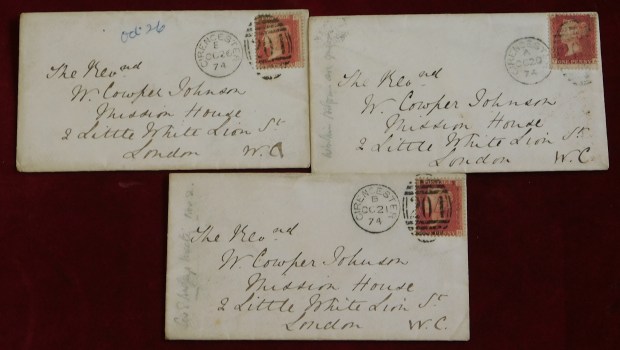 Oct 26
CIRENCESTER
B
OC 26
74
204
The Revnd
W. Cowper Johnson
Mission House
2 Little White Lion St.
London W.C
CIRENCESTER
A
OC 20
74
The Revnd
W. Cowper Johnson
Mission House
2 Little White Lion St.
London W.C.
CIRENCESTER
B
OC 21
74
204
The Revnd
W. Cowper Johnson
Mission House
2 Little White Lion St
London W.C.